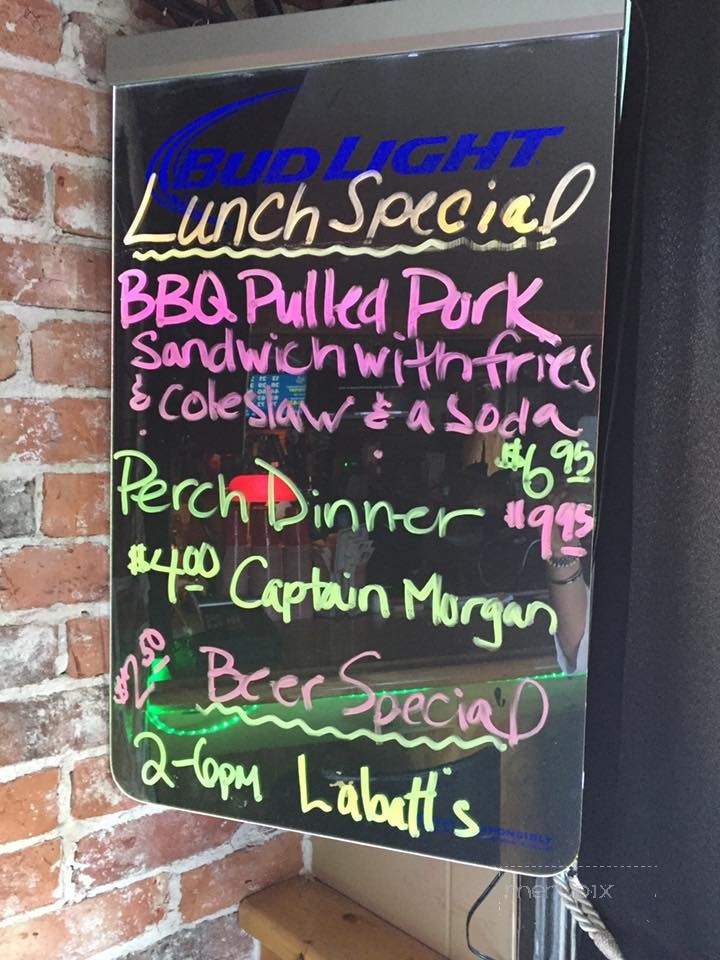 BUD LIGHT
Lunch Special
BBQ Pulled Pork
Sandwich with fries
& Coleslaw & a Soda
$6.95
Perch Dinner $9.95
$4.00 Captain Morgan
$2.50 Beer Special
2-6pm Labatt's
menupix